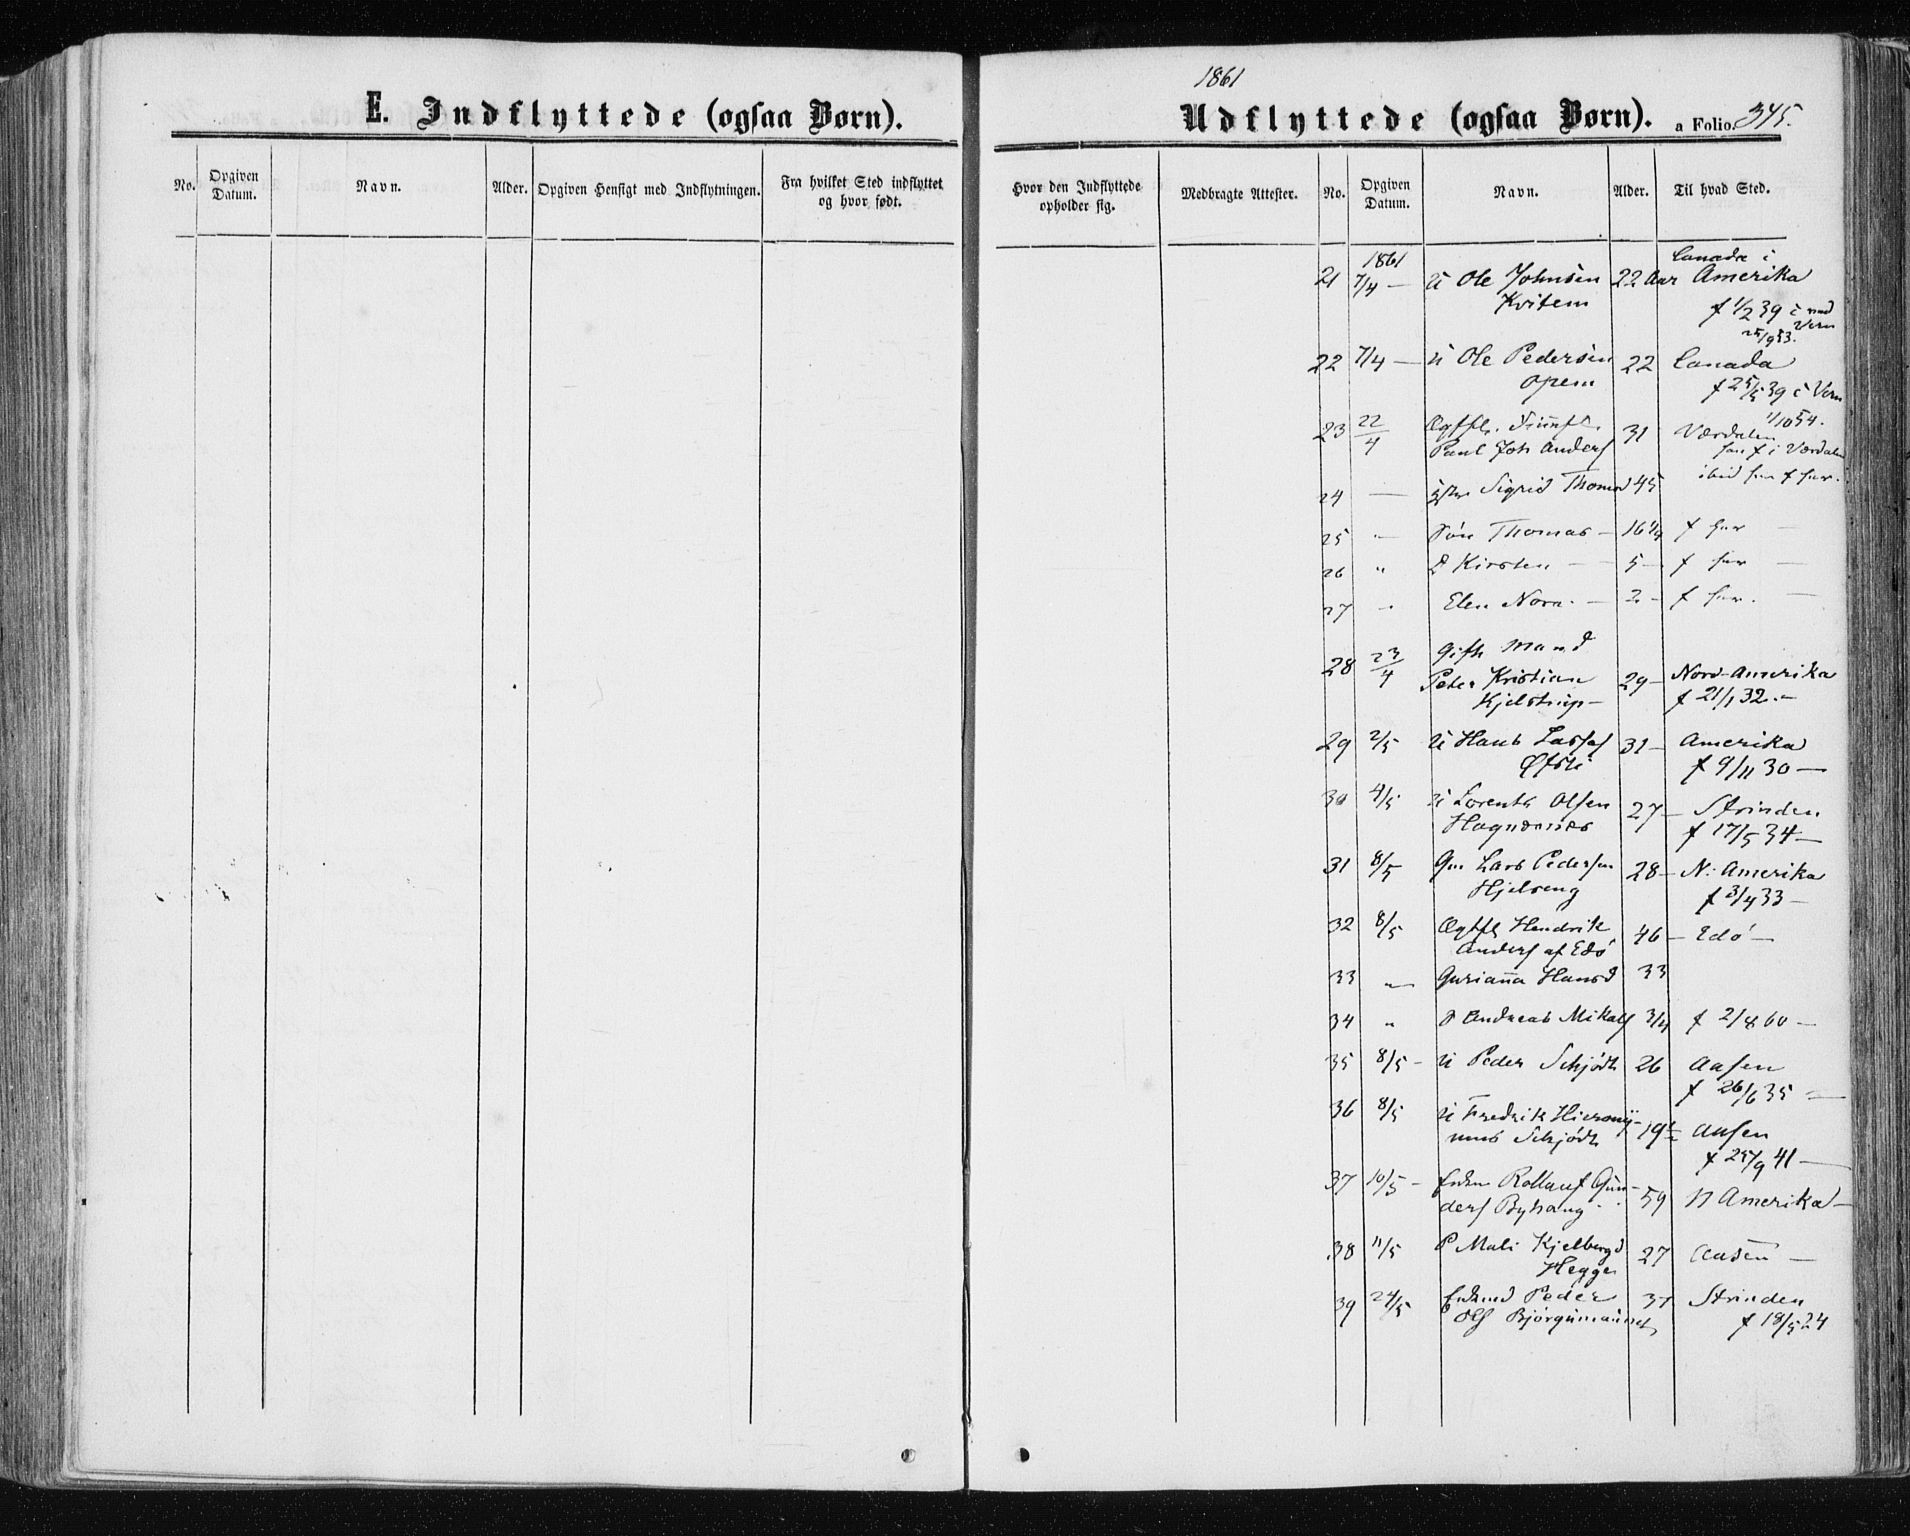 1861
E. Indflyttede (ogsaa Børn).
Udflyttede (ogsaa Børn). a Folio. 345.
No. Opgiven Datum. Navn. Alder. Opgiven Hensigt med Indflytningen. Fra hvilket Sted indflyttet og hvor født.
Hvor den Indflyttede opholder sig. Medbragte Attester. No. Opgiven Datum. Navn. Alder. Til hvad Sted.
1861 Canada i
21 7/4 — u Ole Johnsen 22 Aar Amerika
Kvitem f 1/2 39
22 7/4 — u Ole Pedersen 22 Canada
Opem f 25/5 39 i Vern
1/10 54.
23 22/4 31 Værdalen
Paul Joh Anders f i Værdalen
24 — Sigrid Thomsd 45
25 Søn Thomas — 16 1/4 f her —
26 " D Kirsten — 5 — f her —
27 " Elen Nora — 2 — f her. —
28 23/4 Gift Mand
Peter Kristian 29 — Nord-Amerika
Kjelstrup — f 21/1 32. —
29 2/5 u Hans Larss 31 — Amerika
Øfsti f 9/11 30 —
30 4/5 u Lorents Olsen 27 — Strinden
f 17/5 34 —
31 8/5 Gm Lars Pedersen 28 — N. Amerika
Hjelseng f 3/4 33 —
32 8/5 Hendrik 46 — Edø —
Anders af Edø
33 " Guriana Hansd 33
34 " S Andreas Mikal 3/4 f 2/8 60 —
35 8/5 — u Peder Schjødt 26 Aasen
f 26/6 35 —
36 8/5 u Fredrik Hierony-
mus Schjødt 19 Aasen
f 25/9 41 —
37 10/5 — Enkm Gun-
ders Byhaug 59 N Amerika —
38 11/5 P Mali Kjelbergd 27 Aasen —
Hegge
39 24/5 Enkmd Peder 37 Strinden
Ols f 18/5 24